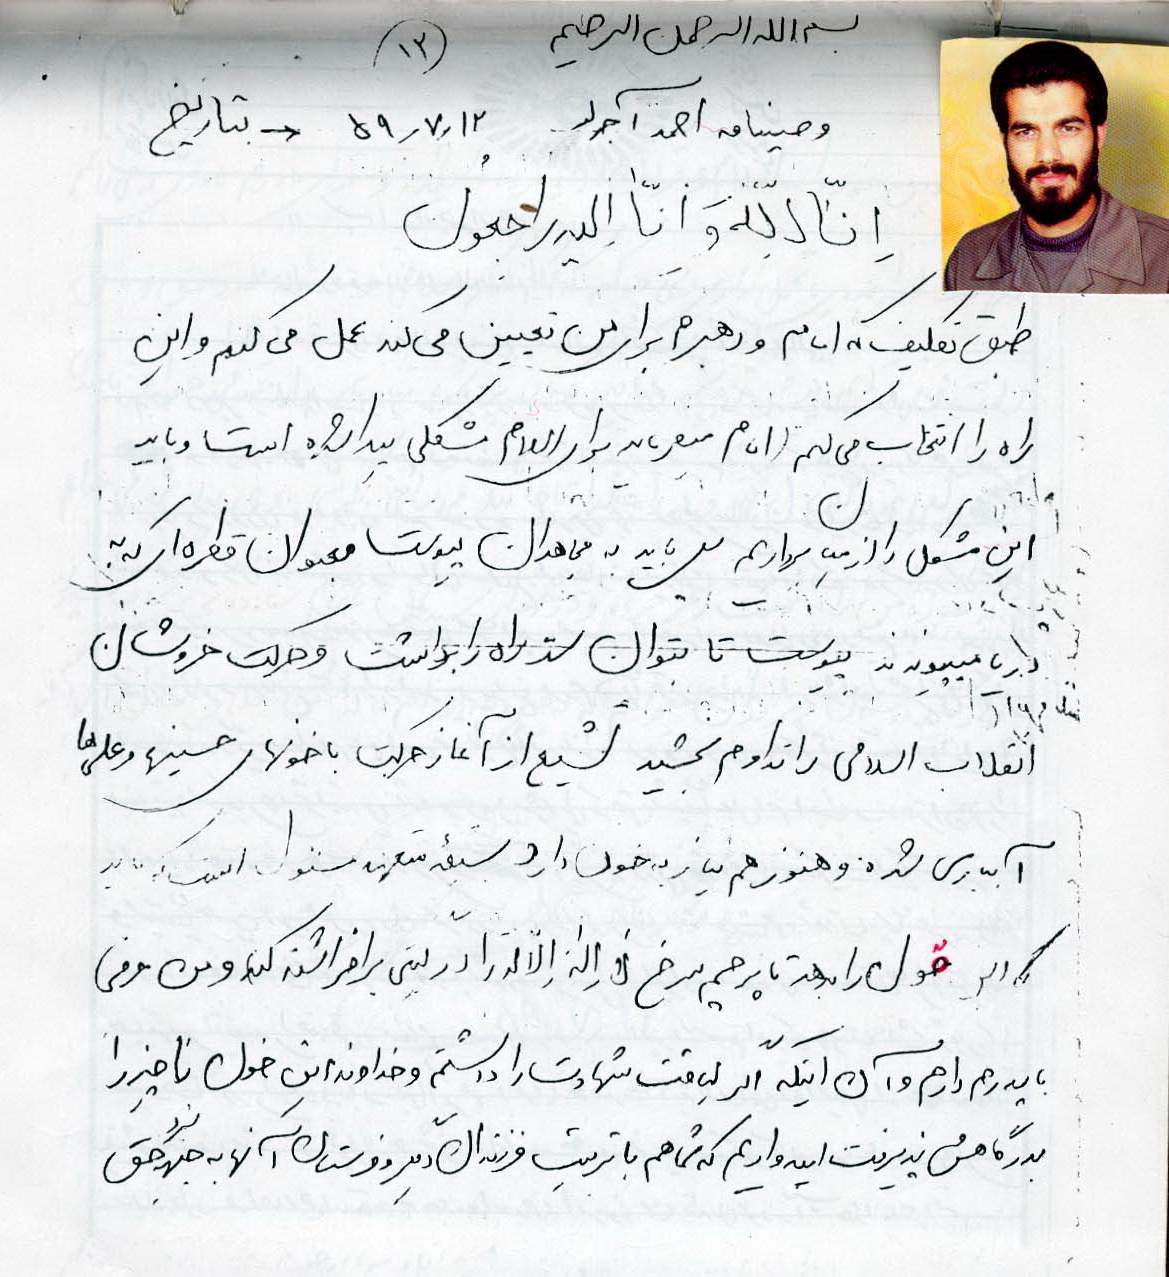 بسم الله الرحمن الرحیم
(۱۲)
وصیتنامه احمد آجرلو بتاریخ → ۵۹٫۷٫۱۲
اِنّا لِلّهِ وَ اِنّا اِلَیهِ راجعُون
طبق تکلیفی که امام و رهبرم برای من تعیین می کند عمل می کنم و این
راه را انتخاب می کنم (امام میفرماید برای اسلام مشکلی پیدا شده است و باید
این مشکل را از میان برداریم پس باید به مجاهدان پیوست بعنوان قطره ای که به
دریا میپیوندند پیوست تا بتوان سد راه را برداشت و حرکت خروشان
انقلاب اسلامی را تداوم بخشید تشیع از آغاز حرکت با خونهای حسینها و علی ها
آبیاری شده و هنوز هم نیاز به خون دارد شیعه متعهد مسئول است که باید
که این خون را بدهد تا پرچم سرخ لا اله الا الله را در گیتی برافراشته کند و من حرفی
با پدرم دارم و آن اینکه اگر لیاقت شهادت را داشتم و خداوند این خون ناچیز را
بدرگاهش پذیرفت امیدواریم که شما هم با تربیت فرزندان دیگر و فرستادن آنها به نبرد حق